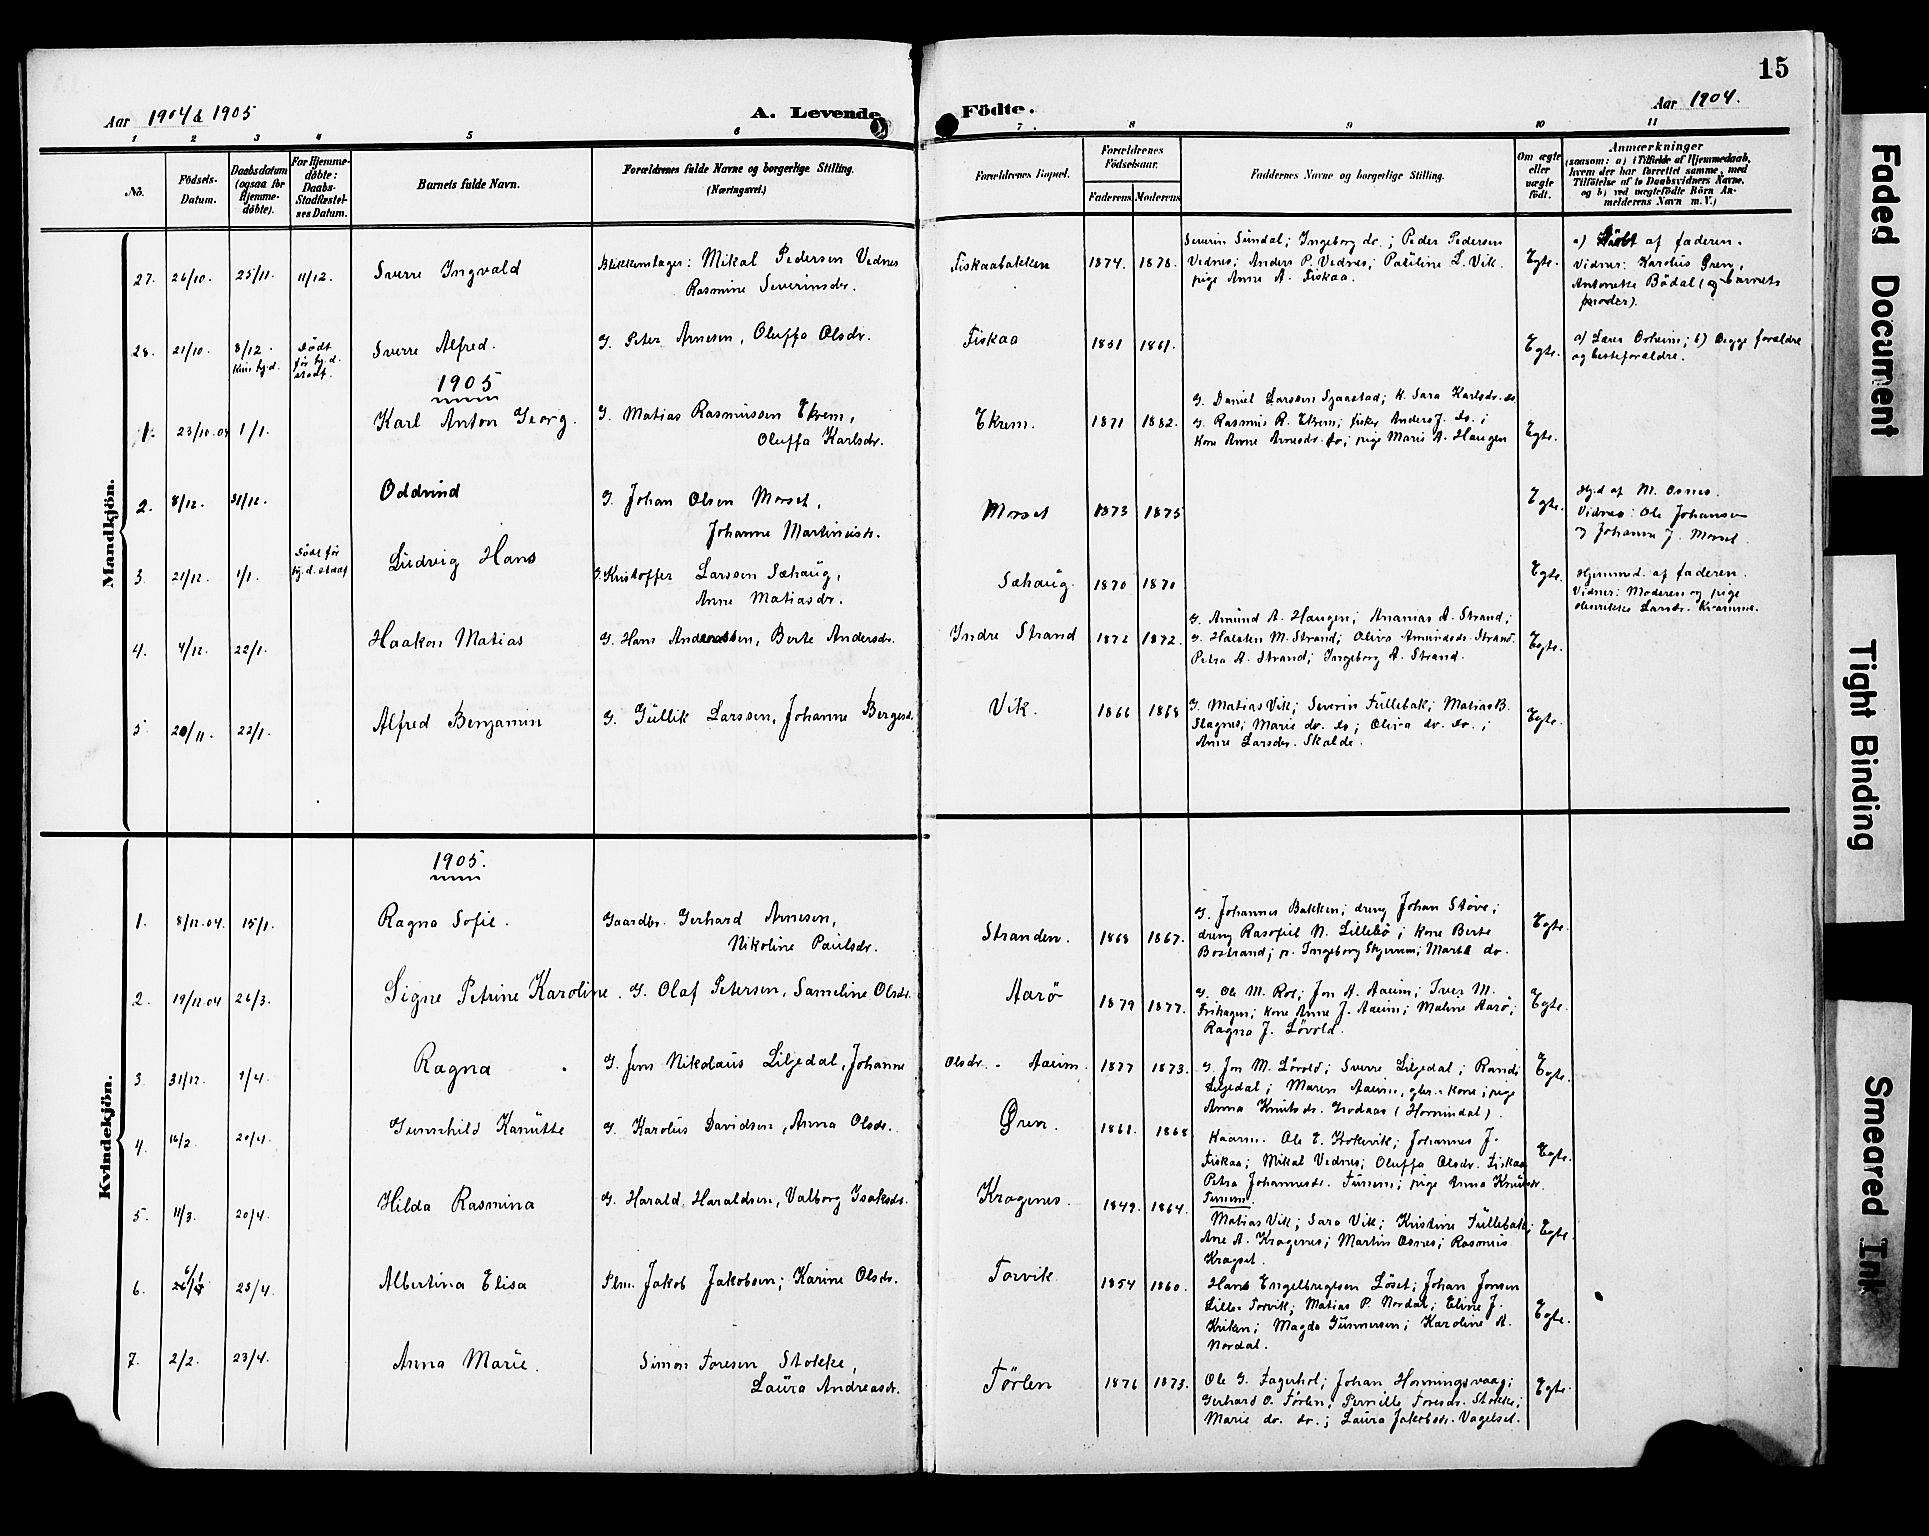 15
Aar 1904 & 1905
A. Levende Födte.
Aar 1904.
1 2 3 4 5 6 7 8 9 10 11
No.
Födsels-Datum.
Daabsdatum (ogsaa for Hjemme-döbte).
For Hjemme-döbte: Daabs-Stadfæstel-ses Datum.
Barnets fulde Navn.
Forældrenes fulde Navne og borgerlige Stilling.
(Næringsvei.)
Forældrenes Bopæl.
Forældrenes Födselsaar.
Faderens Moderens
Faddernes Navne og borgerlige Stilling.
Om ægte eller uægte födt.
Anmærkninger
(saasom: a) i Tilfælde af Hjemmedaab,
hvem der har forrettet samme, med
Tilföielse af to Daabsvidners Navne,
og b) ved uægtefödte Börn An-
melderens Navn m. V.)
Mandkjön.
27. 26/10. 25/11. 11/12. Sverre Ingvald
Blikkenslager: Mikal Pedersen Vednes
Rasmine Severinsdr.
Fiskaabakken 1874. 1878.
Severin Sundal; Ingeborg do.; Peder Pedersen
Vednes; Anders P. Vednes; Pauline L. Vik.
pige Anne A. Fiskaa.
Egte.
a) af faderen.
Vidner: Karolus Gren,
Antonette Bödal (og barnets
moder).
28. 21/10. 8/12. Kun hj.d. Födt før hj.d. Sverre Alfred.
G. Peter Arnesen, Oluffa Olsdr.
Fiskaa 1861 1861. Egte.
a) Lærer Orheim; b) Begge forældre
og besteforældre.
1905
1. 23/10.04 1/1. Karl Anton Georg.
G. Matias Rasmussen Ekrem,
Oluffa Karlsdr.
Ekrem. 1871 1882.
G. Daniel Larssen Sjaastad; K. Sara Karlsdr. do
G. Rasmus R. Ekrem; fisker Anders J. do.;
Kone Anne Arnesdr. do; pige Marie A. Haugen
Egte.
2. 8/12. 31/12. Oddvind
G. Johan Olsen Morset,
Johanne Martinusdr.
Morset 1873 1875 Egte.
Hj.d af M. Osnes.
Vidner: Ole Johansen
og Johanne J. Morset.
3. 21/12. 1/1. Födt før hj.d. Ludvig Hans
G. Kristoffer Larssen Sæhaug,
Anne Matiasdr.
Sæhaug. 1870 1870 Egte.
Hjemmed. af faderen.
Vidner: Moderen og pige
Henrikke Larsdr. Kramme.
4. 4/12. 22/1. Haakon Matias
G. Hans Anderssen, Berte Andersdr.
Yndre Strand 1872 1872.
G. Amund A. Haugen; Ananias A. Strand;
G. Halsten M. Strand; Oliva Amundsdr. Strand.
Petra A. Strand; Ingeborg A. Strand.
Egte.
5. 20/11. 22/1. Alfred Benjamin
G. Gullik Larssen, Johanne Bergesd.
Vik. 1866 1868
G. Matias Vik; Severin Fullebak; Matias B.
Slagnes; Marie do. do; Oliva do. do.;
Anne Larsdr. Skalde.
Egte.
Kvindekjön.
1905.
1. 8/12.04. 15/1. Ragna Sofie.
Gaardbr. Gerhard Arnesen,
Nikoline Paulsdr.
Stranden. 1868 1867.
G. Johannes Bakken; dreng Johan Støve;
dreng Rasofiel N. Lillebö; kone Berte
Bostrand; p. Ingeborg Skjervum; Martha do.
Egte.
2. 19/12.04 26/3. Signe Petrine Karoline.
G. Olaf Petersen, Sameline Olsdr.
Aarö 1879 1877.
G. Ole M. Roe; Jon A. Aaeim; Iver M.
Frihagen; Kone Anne J. Aaeim; Maline Aarö;
Ragna J. Lövold.
Egte.
3. 31/12. 9/4. Ragna
G. Jens Nikolaus Liljedal, Johanne
Olsdr. - Aaeim. 1877 1873.
G. Jon M. Lövold; Sverre Liljedal; Randi
Liljedal; Maren Aaeim, gbr.-kone; pige
Anna Knutsdr. Grodaas (Hornindal).
Egte.
4. 16/2. 20/4. Gunnhild Kanutte
G. Karolus Davidsen, Anna Olsdr.
Øren. 1861. 1868
Gaarm. Ole E. Krokevik; Johannes J.
Fiskaa; Mikal Vednes; Oluffa Olsdr. Fiskaa
Petra Johannesdr. Tunem; pige Anna Knutsdr.
Tunem.
Egte.
5. 11/3. 20/4. Hilda Rasmina
G. Harald Haraldsen, Valborg Isaksdr.
Kragenes. 1849. 1864.
Matias Vik; Sara Vik; Kristine Fullebak;
Ane A. Kragenes; Martin Osnes; Rasmus
Kragset.
Egte.
6. 23/4. Albertina Elisa
Plm. Jakob Jakobsen; Karine Olsdr.
Torvik. 1854 1860.
Hans Engelbregtsen Löset; Johan Jonsen
Lille-Torvik; Matias P. Nordal; Eline J.
Kriken; Magda Gunnersen; Karoline A.
Nordal.
Egte.
7. 2/2. 23/4. Anna Marie.
Simon Toresen Stokke,
Laura Andreasdr.
Törlen 1876 1873.
Ole G. Fagerhol; Johan Honningsvaag;
Gerhard O. Törlen; Pernille Toresdr. Stokke;
Marie do. do.; Laura Jakobsdr. Vagelset.
Egte.
Faded Document
Tight Binding
Smeared Ink